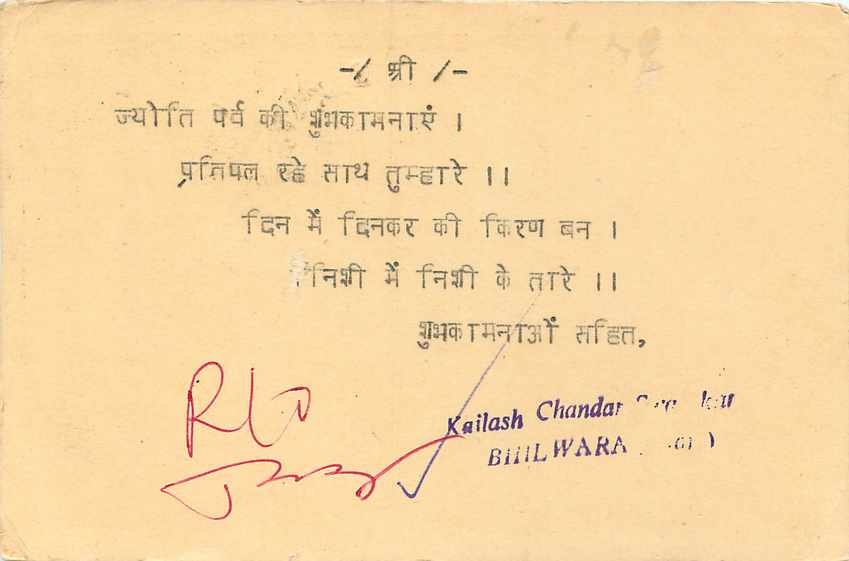 -/ श्री /-
ज्योति पर्व की शुभकामनाएं ।
प्रतिपल रहे साथ तुम्हारे ।।
दिन में दिनकर की किरण बन ।
निशी में निशी के तारे ।।
शुभकामनाओं सहित,
Kailash Chandar
BHILWARA